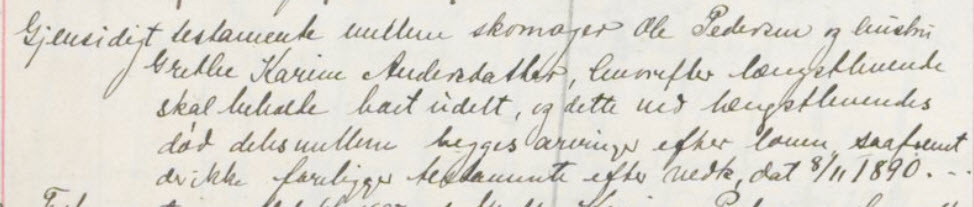 Gjensidigt testamente mellem skomager Ole Pedersen og hustru
Grethe Karine Andersdatter, hvorefter længstlevende
skal beholde boet udelt, og dette ved længstlevendes
død deles mellem begges arvinger efter loven, saafremt
der ikke foreligger testamente efter vedk, dat 8/11 1890. - -